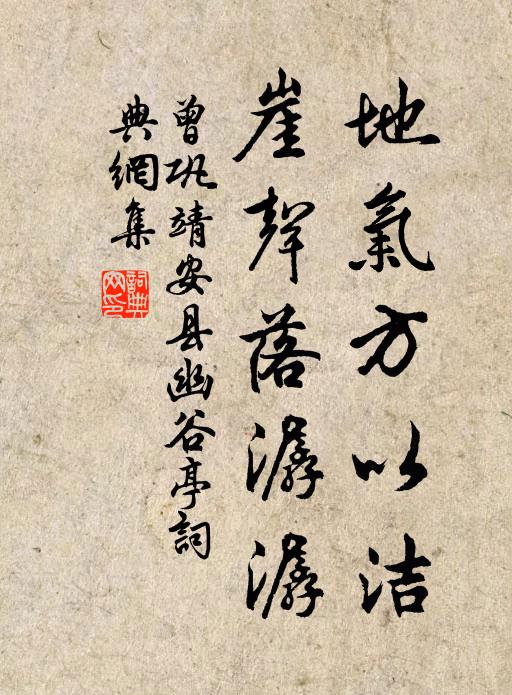 地氣方以洁
崖聲落潺潺
曾巩靖安县幽谷亭詞
典網集
詞典网印